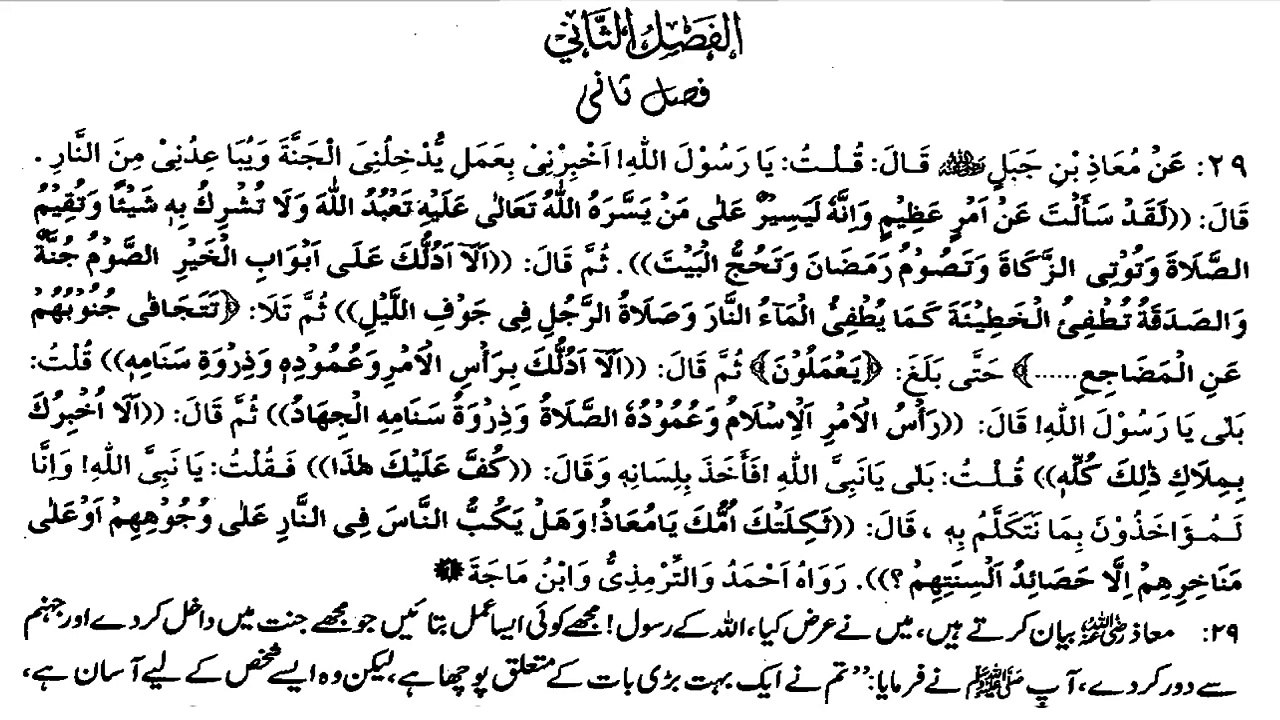 الفَصْلُ الثَّانِي
فصل ثانی
٢٩: عَنْ مُعَاذِ بْنِ جَبَلٍ ؓ قَالَ: قُلْتُ: يَا رَسُوْلَ اللّٰهِ! اَخْبِرْنِيْ بِعَمَلٍ يُّدْخِلُنِيَ الْجَنَّةَ وَيُبَا عِدُنِيْ مِنَ النَّارِ.
قَالَ: ((لَقَدْ سَأَلْتَ عَنْ اَمْرٍ عَظِيْمٍ وَاِنَّهٗ لَيَسِيْرٌ عَلٰى مَنْ يَسَّرَهُ اللّٰهُ تَعَالٰى عَلَيْهِ تَعْبُدُ اللّٰهَ وَلَا تُشْرِكُ بِهٖ شَيْئًا وَتُقِيْمُ
الصَّلَاةَ وَتُوْتِى الزَّكَاةَ وَتَصُوْمُ رَمَضَانَ وَتَحُجُّ الْبَيْتَ)). ثُمَّ قَالَ: ((اَلَآ اَدُلُّكَ عَلَى اَبْوَابِ الْخَيْرِ الصَّوْمُ جُنَّةٌ
وَالصَّدَقَةُ تُطْفِئُ الْخَطِيْئَةَ كَمَا يُطْفِئُ الْمَآءُ النَّارَ وَصَلَاةُ الرَّجُلِ فِى جَوْفِ اللَّيْلِ)) ثُمَّ تَلَا: ﴿تَتَجَافٰى جُنُوْبُهُمْ
عَنِ الْمَضَاجِعِ......﴾ حَتّٰى بَلَغَ: ﴿يَعْمَلُوْنَ﴾ ثُمَّ قَالَ: ((اَلَآ اَدُلُّكَ بِرَأْسِ الْاَمْرِ وَعُمُوْدِهٖ وَذِرْوَةِ سَنَامِهٖ)) قُلْتُ:
بَلٰى يَا رَسُوْلَ اللّٰهِ! قَالَ: ((رَأْسُ الْاَمْرِ اَلْاِسْلَامُ وَعُمُوْدُهُ الصَّلَاةُ وَذِرْوَةُ سَنَامِهِ الْجِهَادُ)) ثُمَّ قَالَ: ((اَلَا اُخْبِرُكَ
بِمِلَاكِ ذٰلِكَ كُلِّهٖ)) قُلْتُ: بَلٰى يَانَبِىَّ اللّٰهِ! فَأَخَذَ بِلِسَانِهٖ وَقَالَ: ((كُفَّ عَلَيْكَ هٰذَا)) فَقُلْتُ: يَا نَبِىَّ اللّٰهِ! وَاِنَّا
لَمُؤَاخَذُوْنَ بِمَا نَتَكَلَّمُ بِهٖ، قَالَ: ((ثَكِلَتْكَ اُمُّكَ يَامُعَاذُ! وَهَلْ يَكُبُّ النَّاسَ فِى النَّارِ عَلٰى وُجُوْهِهِمْ اَوْعَلٰى
مَنَاخِرِهِمْ اِلَّا حَصَائِدُ اَلْسِنَتِهِمْ؟)). رَوَاهُ اَحْمَدُ وَالتِّرْمِذِىُّ وَابْنُ مَاجَةَ
٢٩: معاذ ؓ بیان کرتے ہیں، میں نے عرض کیا، اللہ کے رسول! مجھے کوئی ایسا عمل بتائیں جو مجھے جنت میں داخل کر دے اور جہنم
سے دور کر دے، آپ ﷺ نے فرمایا: ”تم نے ایک بہت بڑی بات کے متعلق پوچھا ہے، لیکن وہ ایسے شخص کے لیے آسان ہے،